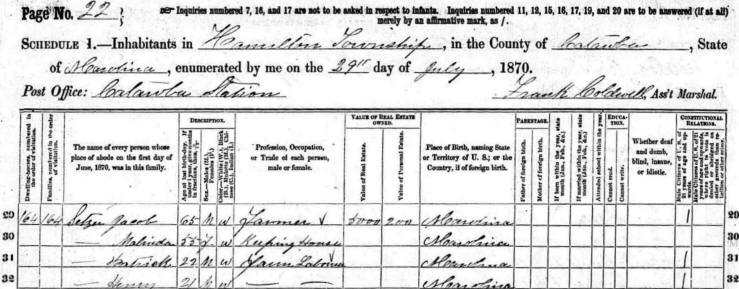 Page No. 22
Inquiries numbered 7, 16, and 17 are not to be asked in respect to infants. Inquiries numbered 11, 12, 15, 16, 17, 19, and 20 are to be answered (if at all) merely by an affirmative mark, as /.
SCHEDULE 1.—Inhabitants in Hamilton Township, in the County of Catawba, State
of N Carolina, enumerated by me on the 29" day of July, 1870.
Post Office: Catawba Station Frank Coldwell, Ass't Marshal.
Dwelling-houses, numbered in the order of visitation.
Families, numbered in the order of visitation.
The name of every person whose place of abode on the first day of June, 1870, was in this family.
DESCRIPTION.
Profession, Occupation, or Trade of each person, male or female.
VALUE OF REAL ESTATE OWNED.
Value of Real Estate.
Value of Personal Estate.
Place of Birth, naming State or Territory of U. S.; or the Country, if of foreign birth.
PARENTAGE.
Father of foreign birth.
Mother of foreign birth.
If born within the year, state month (Jan., Feb., &c.)
If married within the year, state month (Jan., Feb., &c.)
Attended school within the year.
EDUCATION.
Cannot read.
Cannot write.
Whether deaf and dumb, blind, insane, or idiotic.
CONSTITUTIONAL RELATIONS.
29 164 164 Setzer Jacob 65 M W Farmer 3000 200 N Carolina 1 29
30 — Malinda 55 F W Keeping House N Carolina 30
31 — 22 M W Farm Laborer N Carolina 1 31
32 — Henry 21 M W — — N Carolina 1 32